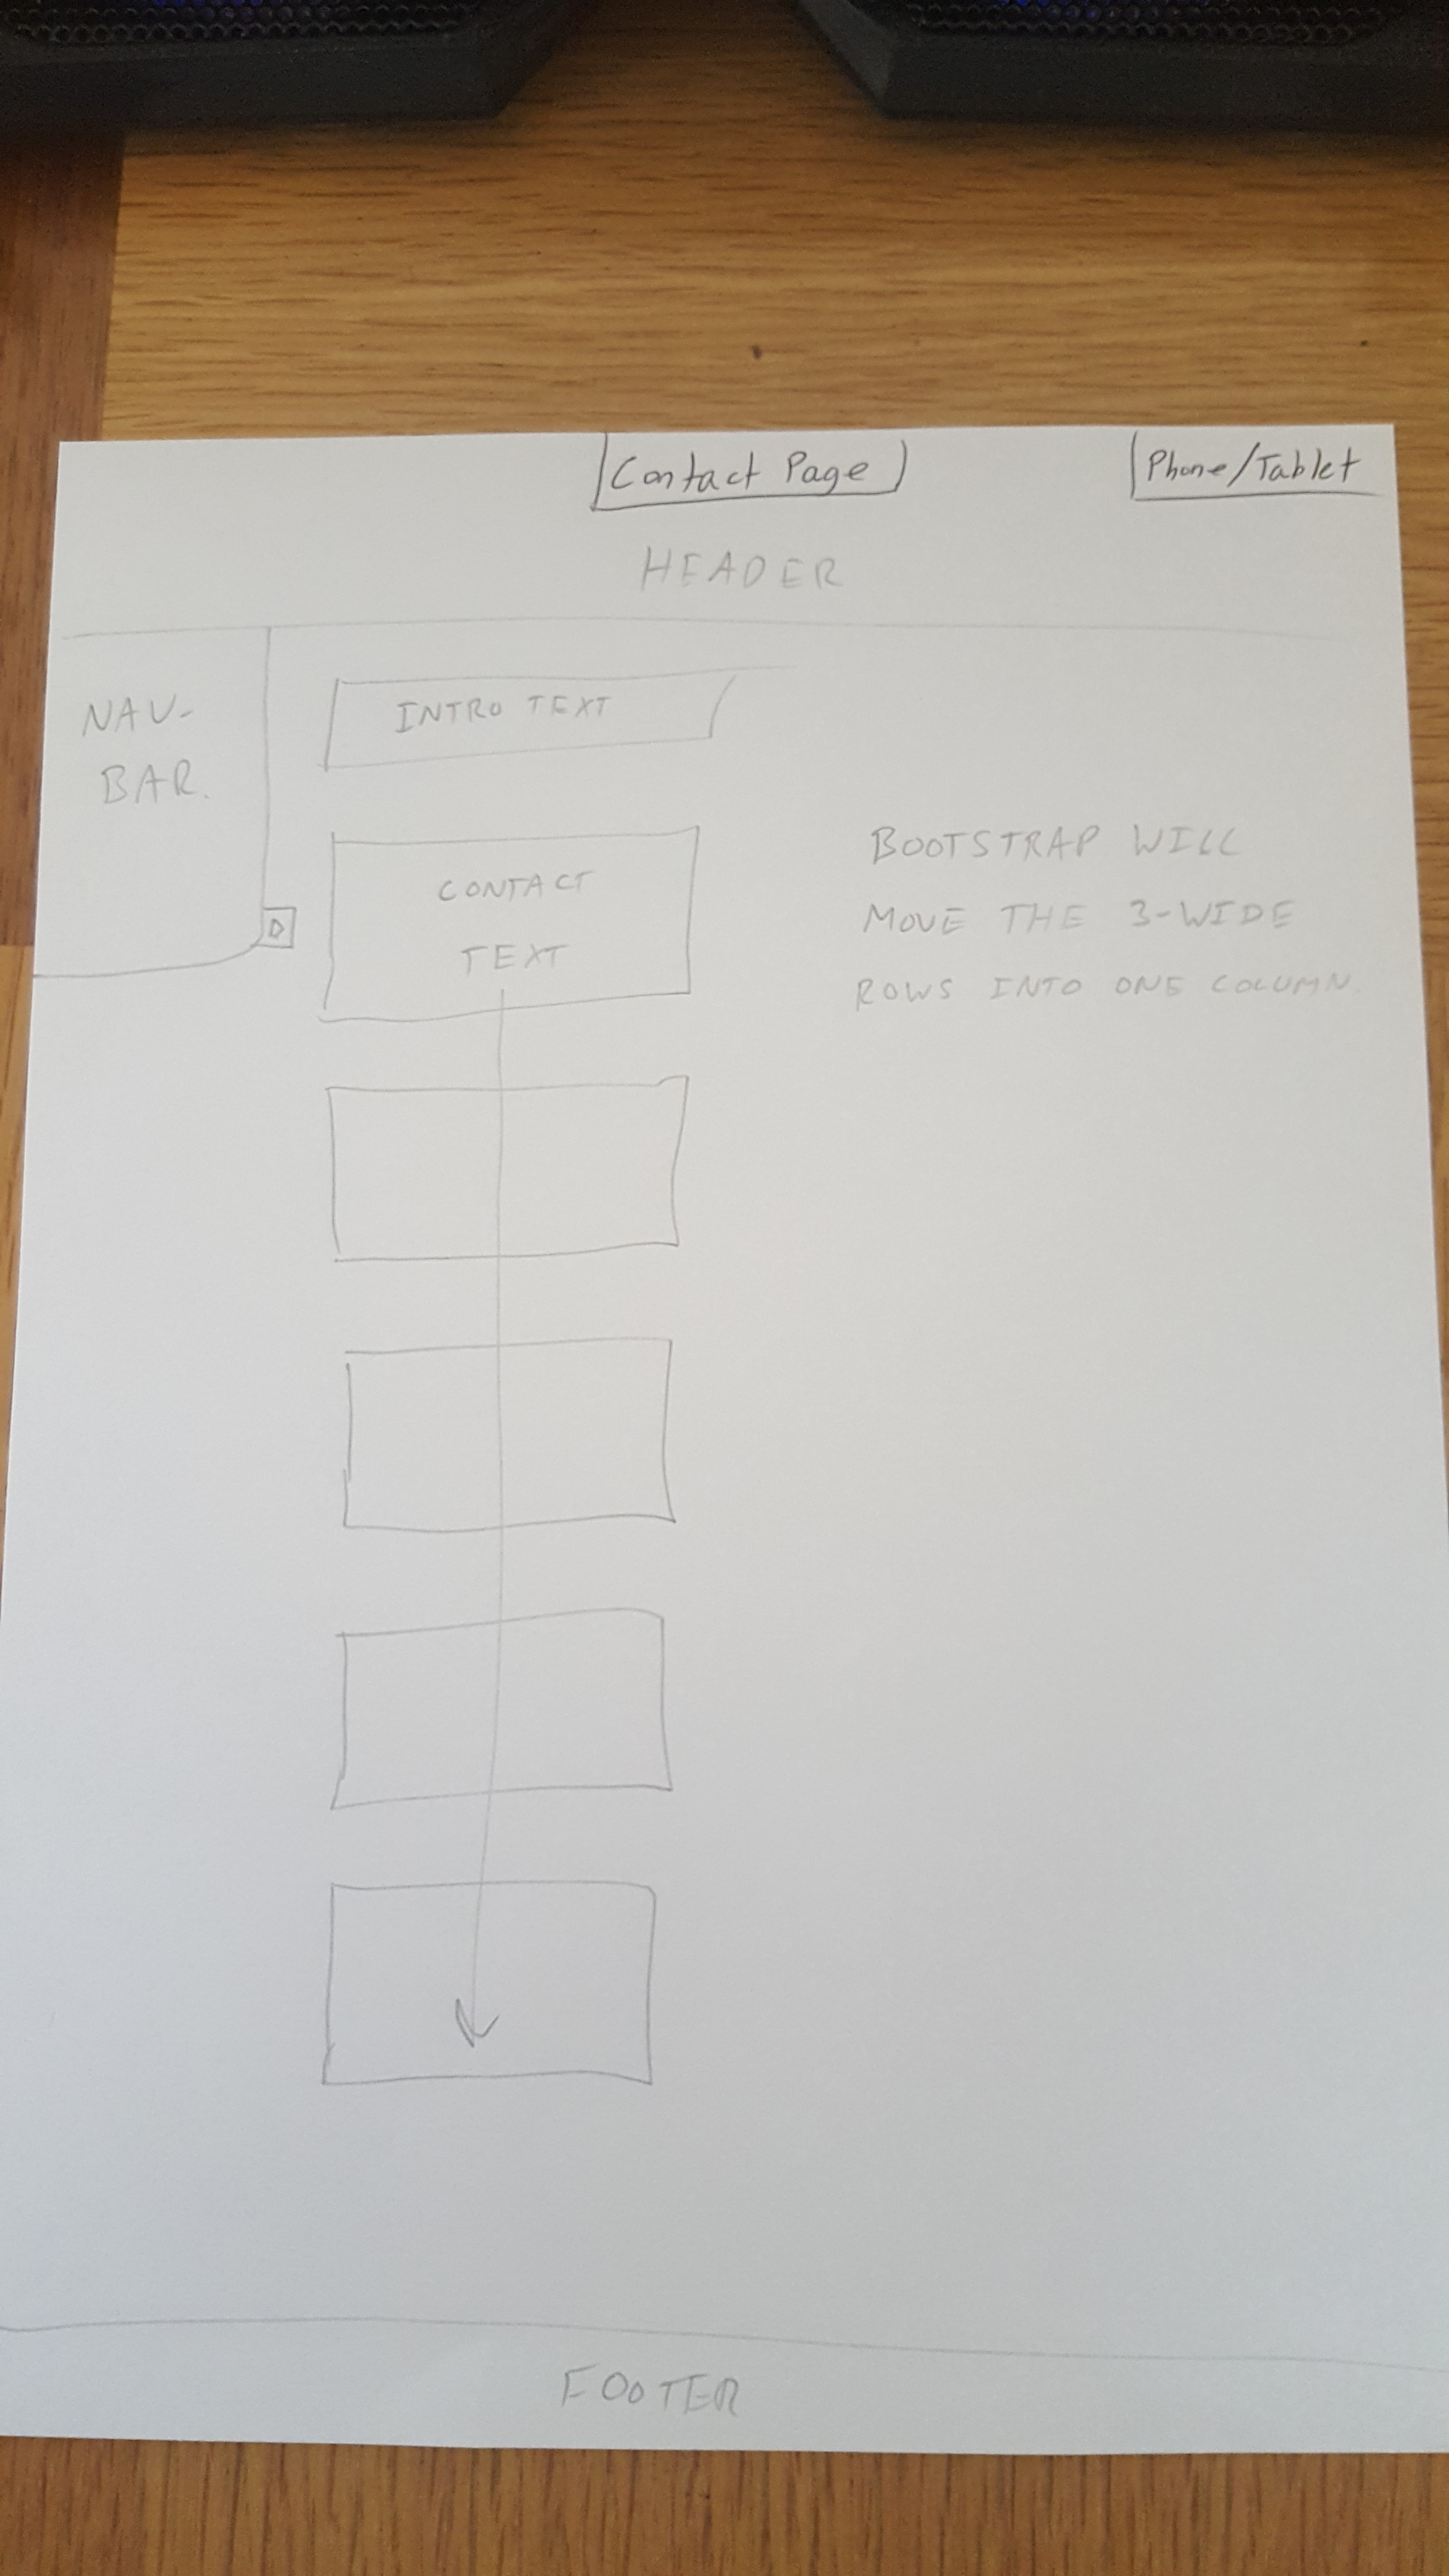 Contact Page
Phone/Tablet
HEADER
NAV-
BAR.
INTRO TEXT
CONTACT
TEXT
BOOTSTRAP WILL
MOVE THE 3-WIDE
ROWS INTO ONE COLUMN.
FOOTER